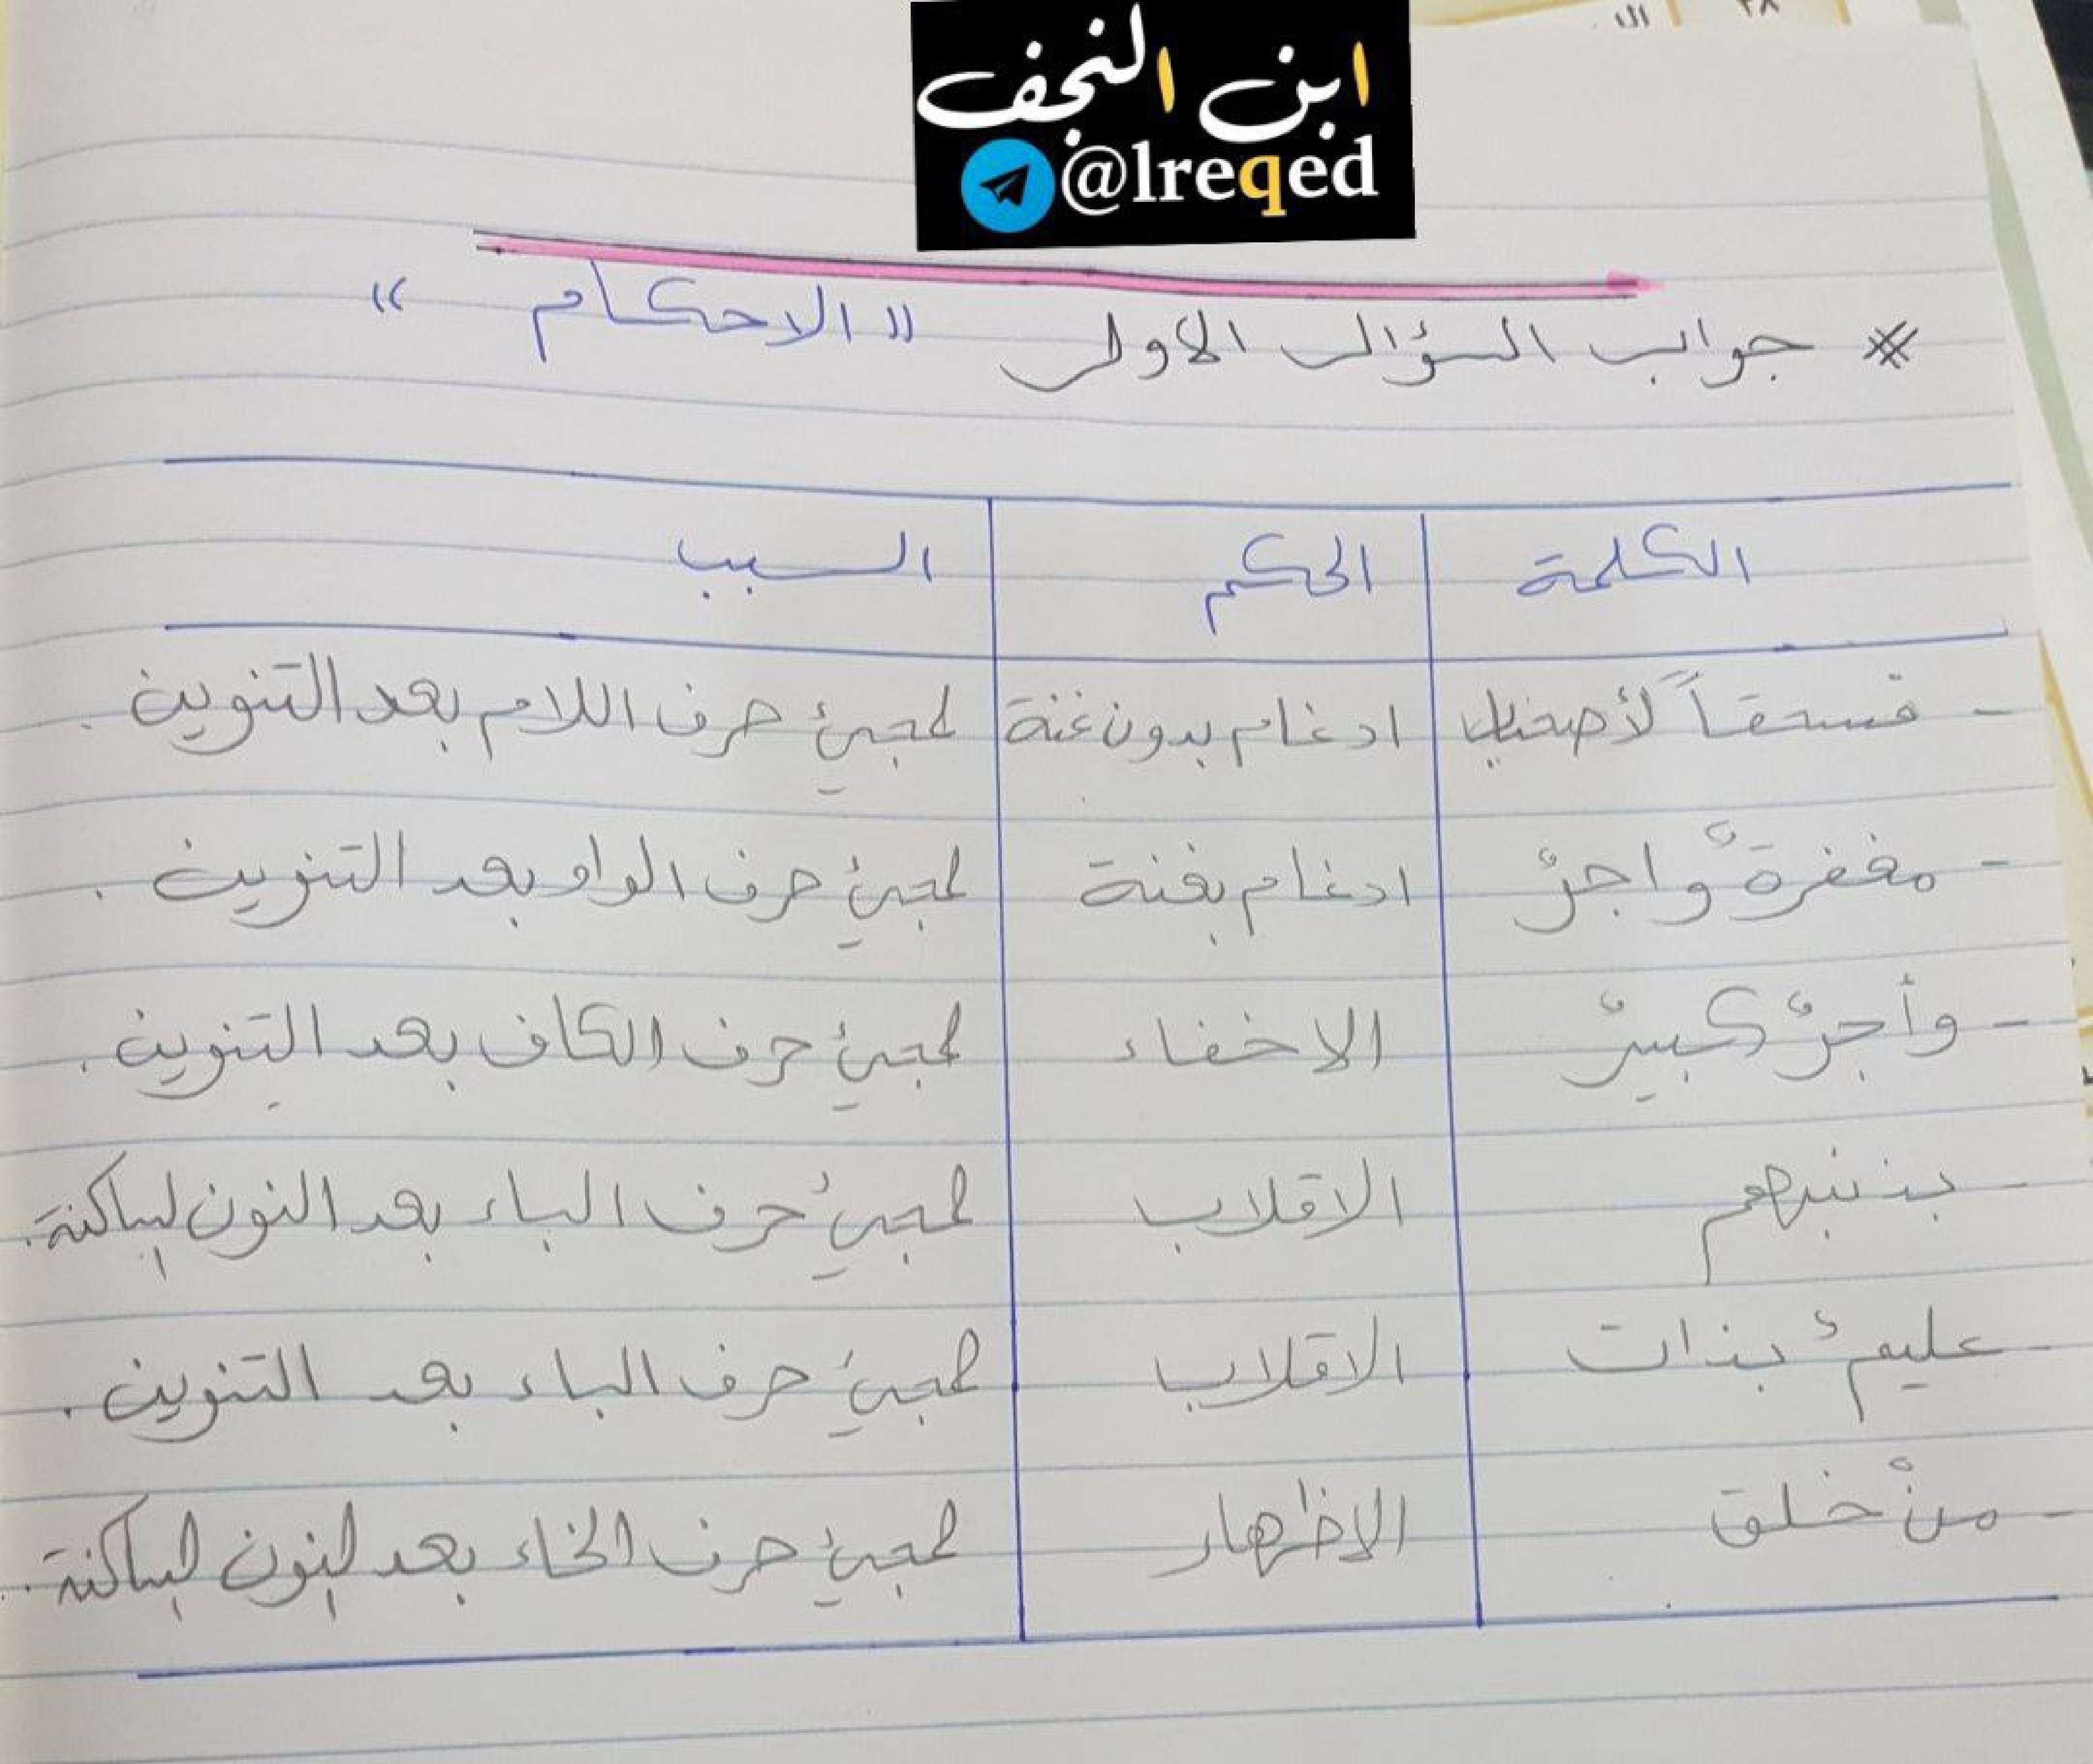 ابن النجف
@lreqed
* جواب السؤال الاول "الاحكام"
الكلمة الحكم السبب
- فسحقاً لأصحاب ادغام بدون غنة لمجيئ حرف اللام بعد التنوين.
- مغفرةٌ واجرٌ ادغام بغنة لمجيئ حرف الواو بعد التنوين.
- وأجرٌ كبيرٌ الاخفاء لمجيئ حرف الكاف بعد التنوين.
- بذنبهم الاقلاب لمجيئ حرف الباء بعد النون الساكنة.
- عليمٌ بذات الاقلاب لمجيئ حرف الباء بعد التنوين.
- منْ خلق الاظهار لمجيئ حرف الخاء بعد النون الساكنة.